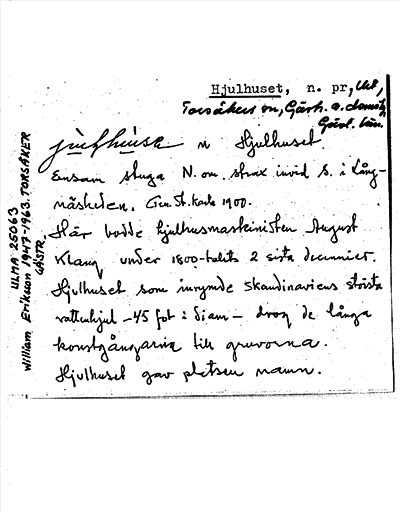 Hjulhuset, n. pr, Ut,
Torsåkers sn, Gästr. o. domsg,
Gävl. län.
n Hjulhuset.
Ensam stuga N. om, strax invid S. i Lång-
näsheden. Gen. St. karta 1900.
Här bodde hjulhusmaskinisten August
Klang under 1800-talets 2 sista decennier.
Hjulhuset som inrymde Skandinaviens största
vattenhjul - 45 fot i diam - drog de långa
konstgångarna till gruvorna.
Hjulhuset gav platsen namn.
ULMA 25063
William Eriksson 1947-1963. TORSÅKER
GÄSTR.